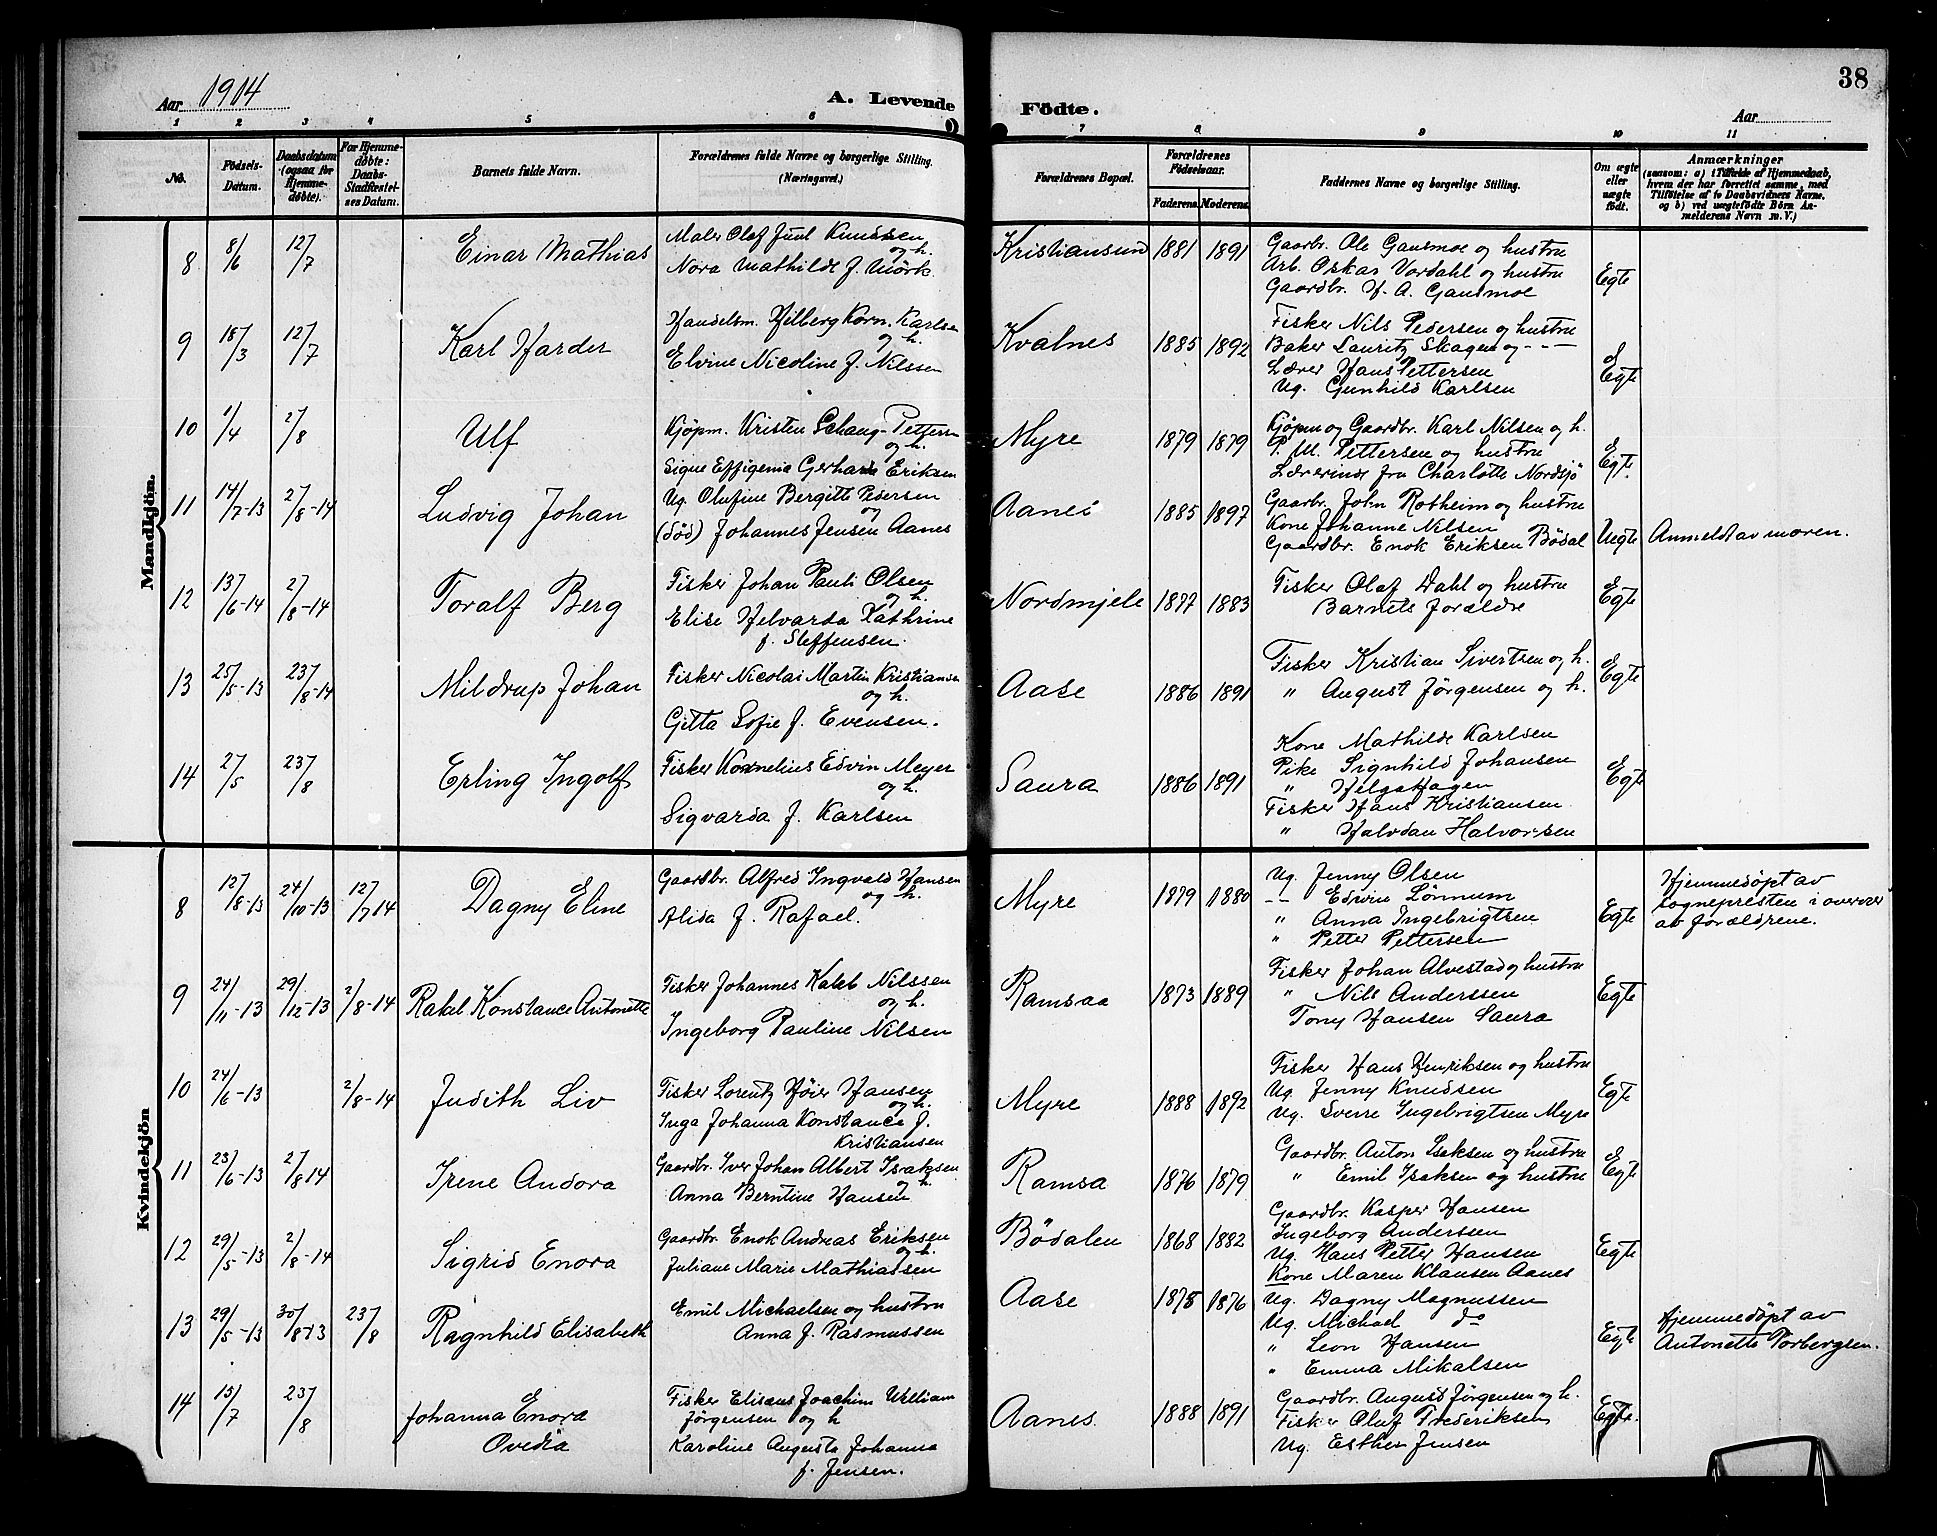 38
Aar 1914
A. Levende Födte.
Aar
1 2 3 4 5 6 7 8 9 10 11
No.
Födsels-Datum.
Daabsdatum (ogsaa for Hjemmedøbte).
For Hjemmedøbte: Daabs-Stadfæstelses Datum.
Barnets fulde Navn.
Forældrenes fulde Navne og borgerlige Stilling. (Næringsvei.)
Forældrenes Bopæl.
Forældrenes Födselsaar.
Faderens. Moderens.
Faddernes Navne og borgerlige Stilling.
Om ægte eller uægte födt.
Anmærkninger
(saasom: a) i Tilfælde af Hjemmedaab,
hvem der har forrettet samme, med
Tilföielse af to Daabsvidners Navne,
og b) ved uægtefödte Börn Anmelderens Navn m. V.)
Mandkjön.
8 8/6 12/7 Einar Mathias
Maler Olaf Juul Knudsen og h.
Nora Mathilde f. Mörk
Kristiansund 1881 1891
Gaardbr. Ole Gausmoe og hustru
Arb. Oskar Vordahl og hustru
Gaardbr. H. A. Gausmoe
Egte
9 18/3 12/7 Karl Harder
Handelsm. Hilberg Korn. Karlsen og h.
Elvine Nicoline f. Nilssen
Kvalnes 1885 1892
Fisker Nils Pedersen og hustru
Baker Lauritz Skagen og - - -
Lærer Hans Pettersen
Ug. Gunhild Karlsen
Egte
10 1/4 2/8 Ulf
Kjøpm. Kristen Schang Petterssen og h.
Signe Effigenia Gerharda Eriksen
Myre 1879 1879
Kjøpm og Gaardbr. Karl Nilsen og h.
P. M. Pettersen og hustru
Lærerinde frk Charlotte Nordsjö
Egte.
11 14/7-13 2/8-14 Ludvig Johan
Ug. Olufine Bergitte Pedersen og
(död) Johannes Jensen Aanes
Aanes 1885 1897
Gaardbr. John Rotheim og hustru
Kone Johanne Nilsen
Gaardbr. Enok Eriksen Bödal
Uegte Anmeldt av moren.
12 13/6-14 2/8-14 Toralf Berg
Fisker Johan Pauli Olsen og h.
Elise Helvarda Kathrine
f. Steffensen.
Nordmjele 1877 1883
Fisker Olaf Dahl og hustru
Barnets forældre
Egte
13 25/5-13 23/8-14 Mildrup Johan
Fisker Nicolai Martin Kristiansen og h.
Gitta Sofie f. Evensen.
Aase 1886 1891
Fisker Kristian Sivertsen og h.
" August Jørgensen og h.
Egte
14 27/5 23/8 Erling Ingolf
Fisker Kornelius Edvin Meyer og h.
Sigvarda f. Karlsen
Saura 1886 1891
Kone Mathilde Karlsen
Pike Signhild Johansen
" Helga Hagen
Fisker Hans Kristiansen
" Halvdan Halvorsen
Egte
Kvindekjön
8 12/8-13 24/10-13 12/7 14 Dagny Eline
Gaardbr. Alfred Ingvald Hansen og h.
Alida f. Rafael.
Myre 1879 1880
Ug. Jenny Olsen
-- Edvin Lönnum
" Anna Ingebrigtsen
" Petter Pettersen
Egte
Hjemmedöpt av
sognepresten i overvær
av forældrene.
9 24/11-13 29/12-13 2/8-14 Rakel Konstance Antonette
Fisker Johannes Kaleb Nilssen og h.
Ingeborg Pauline Nilsen
Ramsaa 1873 1889
Fisker Johan Alvestad og hustru
" Nils Anderssen
Tony Hansen Saura
Egte
10 24/6-13 2/8-14 Judith Liv
Fisker Lorentz Høier Hansen og h.
Inga Johanna Konstance f.
Kristiansen
Myre 1888 1892
Fisker Hans Henriksen og hustru
Ug. Jenny Knudsen
Ug. Sverre Ingebrigtsen Myre
Egte
11 23/6-13 2/8 14 Irene Andora
Gaardbr. Iver Johan Albert Isaksen og h.
Anna Berntine Hansen
Ramsa 1876 1879
Gaardbr. Anton Iseksen og hustru
" Emil Isaksen og hustru
Egte
12 29/5-13 2/8-14 Sigrid Enora
Gaardbr. Enok Andreas Eriksen og h.
Juliane Marie Mathiassen
Bödalen 1868 1882
Gaardbr. Kasper Hansen
Ingeborg Anderssen
Ug. Hans Petter Hansen
Kone Maren Klausen Aanes
Egte
13 29/5-13 30/8-13 23/8 Ragnhild Elisabeth
Emil Michaelsen og hustru
Anna f. Rasmussen
Aase 1875 1876
Ug. Dagny Magnussen
Ug. Michael do
" Leon Hansen
" Emma Mikalsen
Egte
Hjemmedöpt av
Antonette Torbergsen.
14 15/7 23/8 Johanna Enora
Ovedia
Fisker Elisæus Joachim William
Jørgensen og h
Karoline Augusta Johanna
f. Jensen.
Aanes. 1888 1891
Gaardbr. August Jørgensen og h.
Fisker Oluf Frederiksen
Ug. Esther Jensen
Egte.